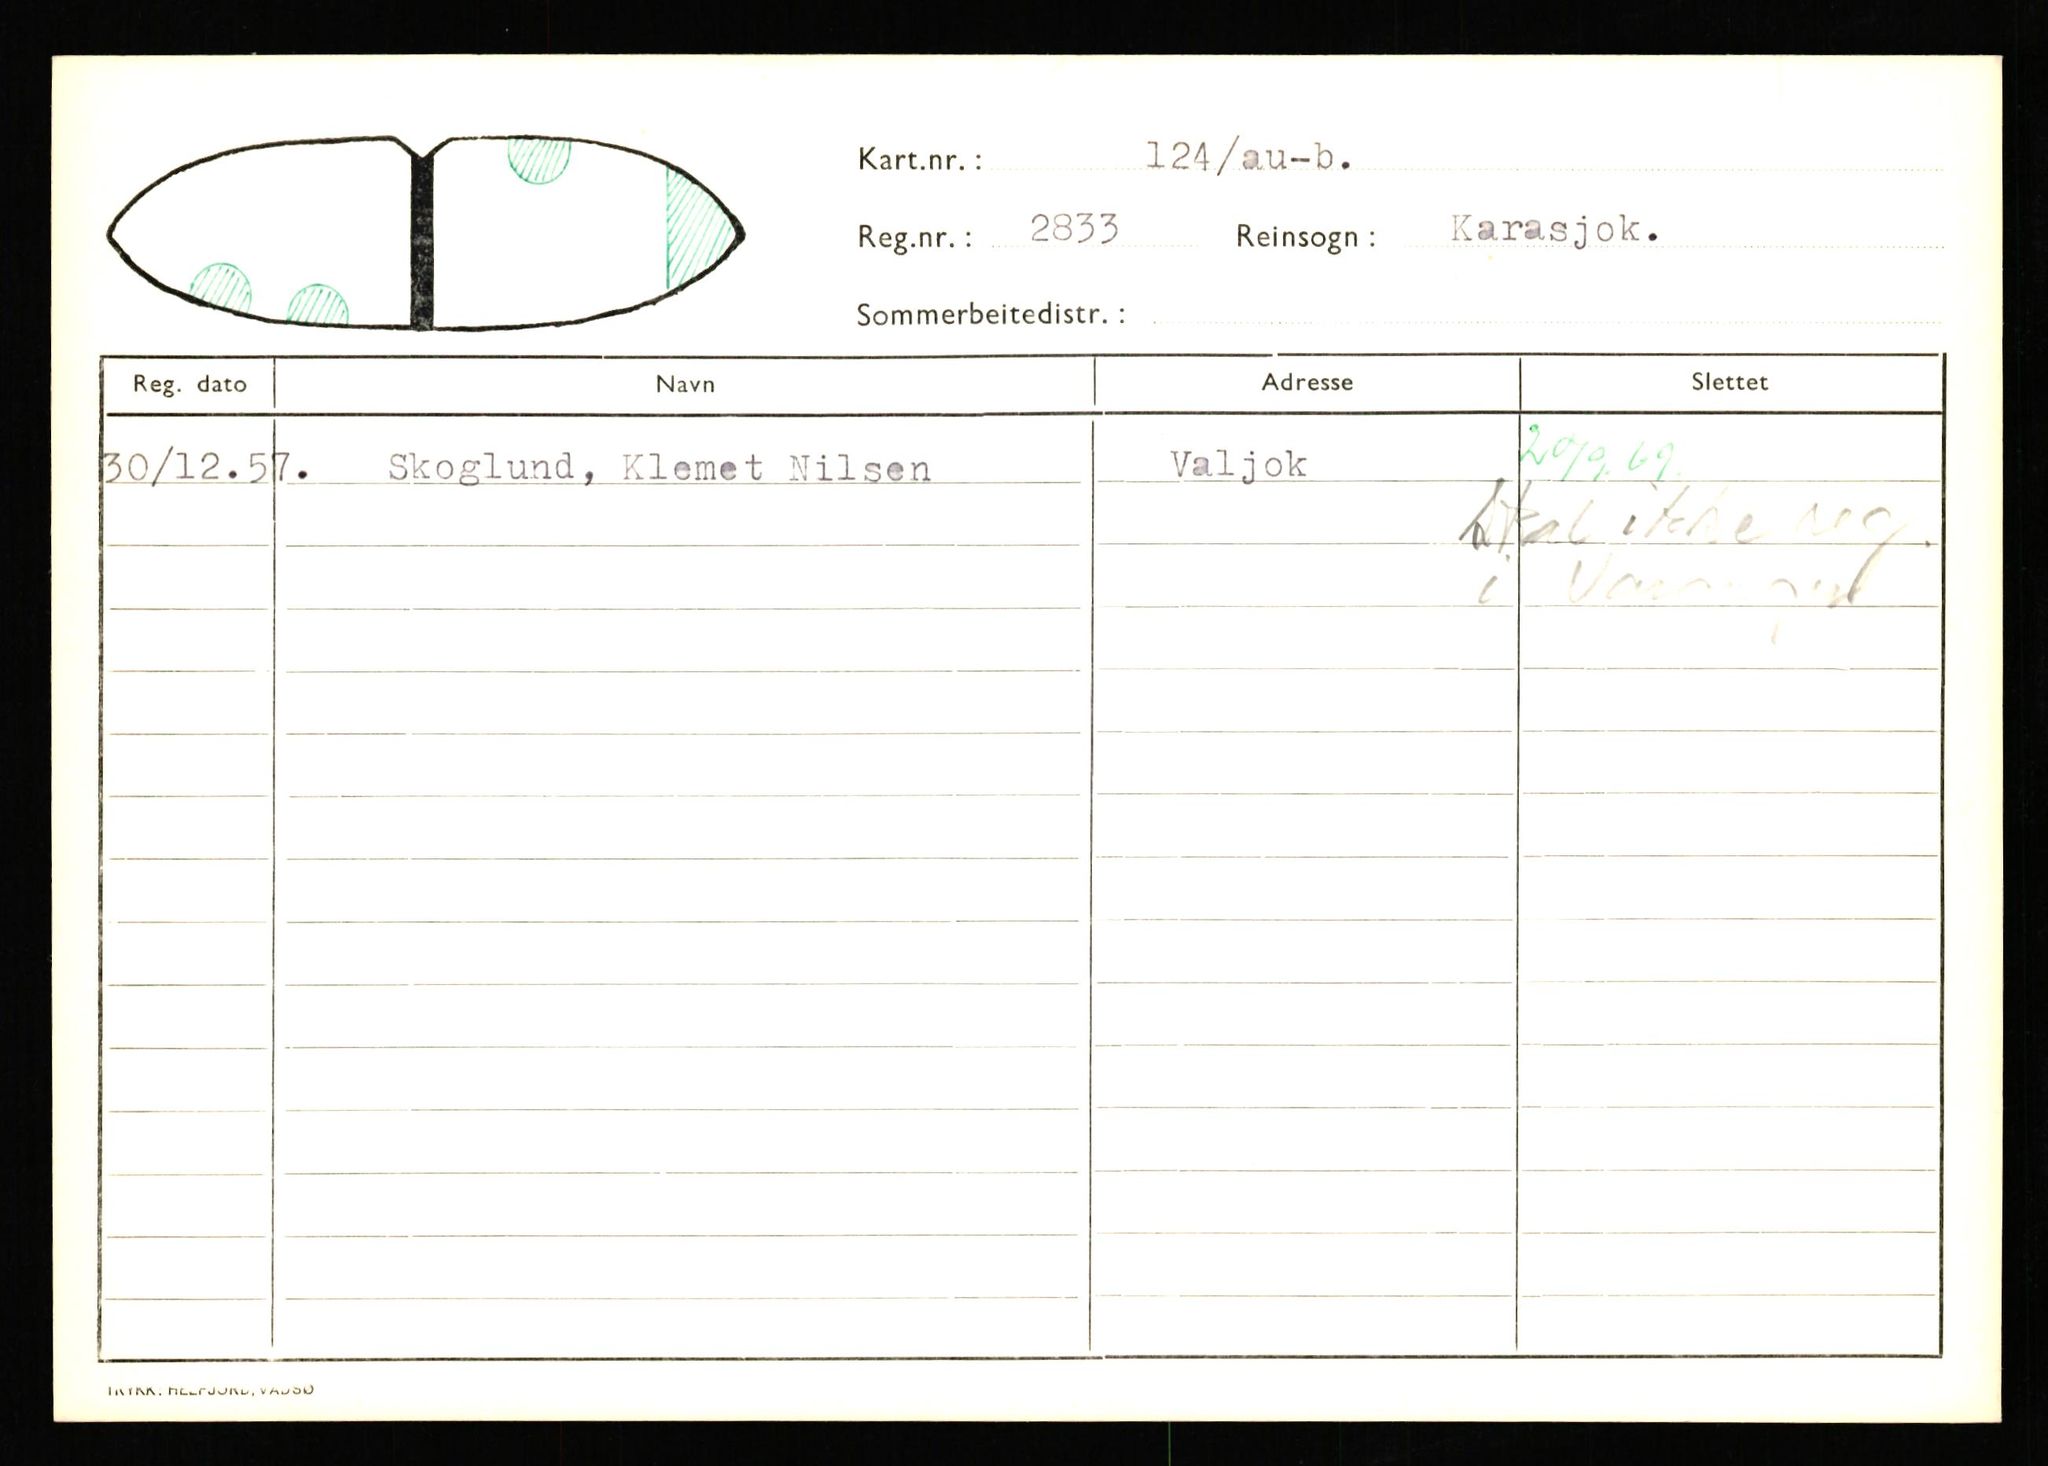 Kart.nr. : 124/au-b.
Reg.nr. : 2833 Reinsogn : Karasjok.
Sommerbeitedistr. :
Reg. dato Navn Adresse Slettet
30/12.57. Skoglund, Klemet Nilsen Valjok 20/9.69.
Skal ikke reg.
i Varanger
TRYKK: HELFJORD, VADSØ